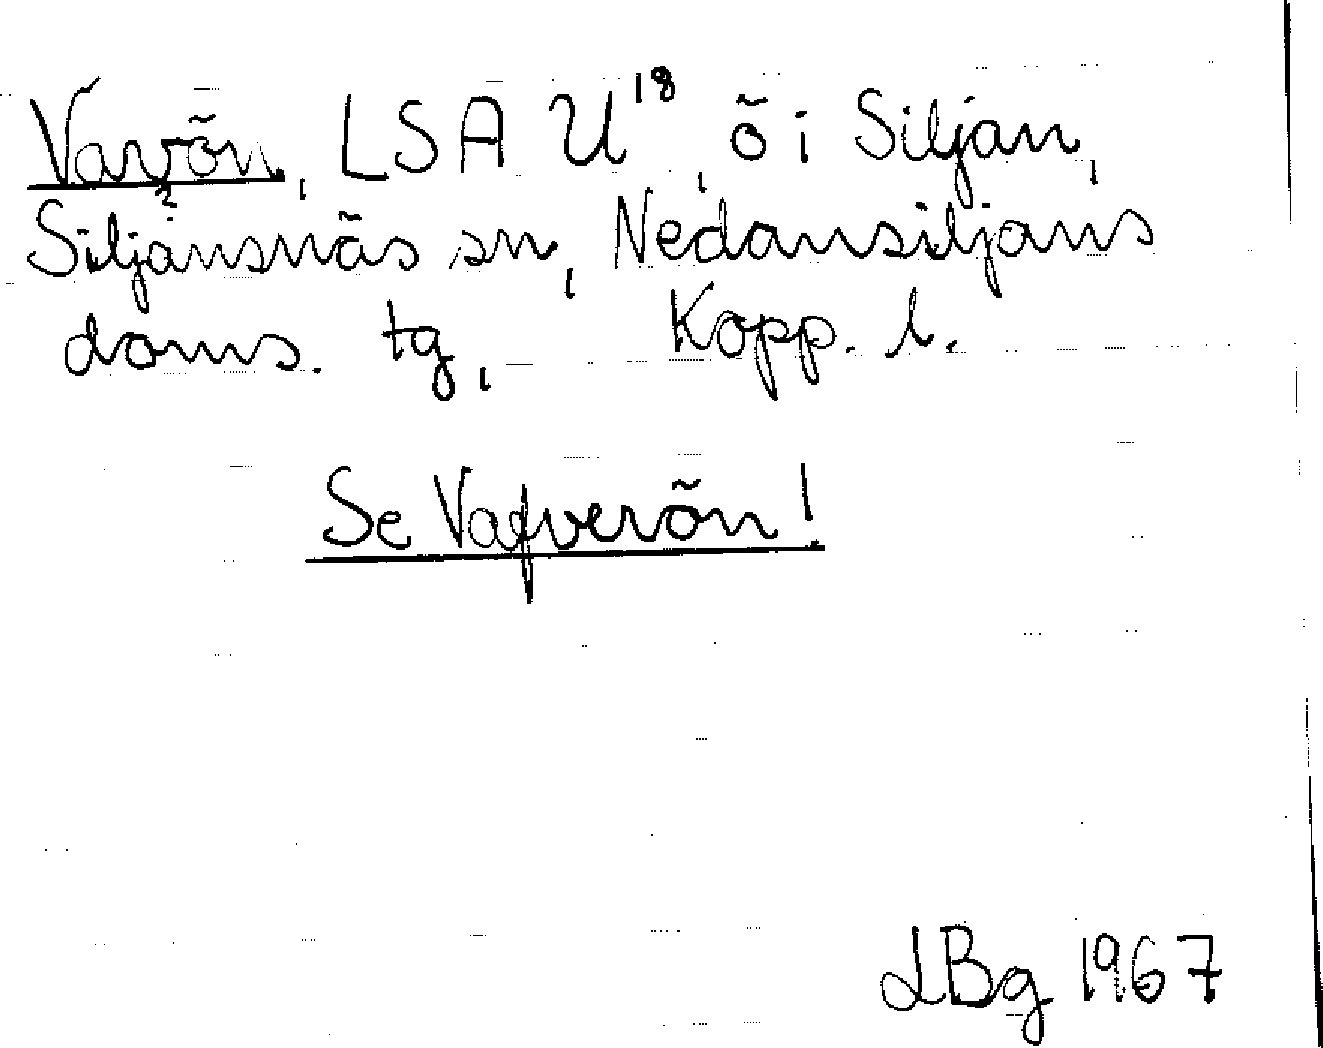 Varvõn, LSA U¹⁸, õ i Siljan,
Siljansnãs sn, Nedansiljans
doms. tg, Kopp. l.
Se Vafverõn!
LBg 1967